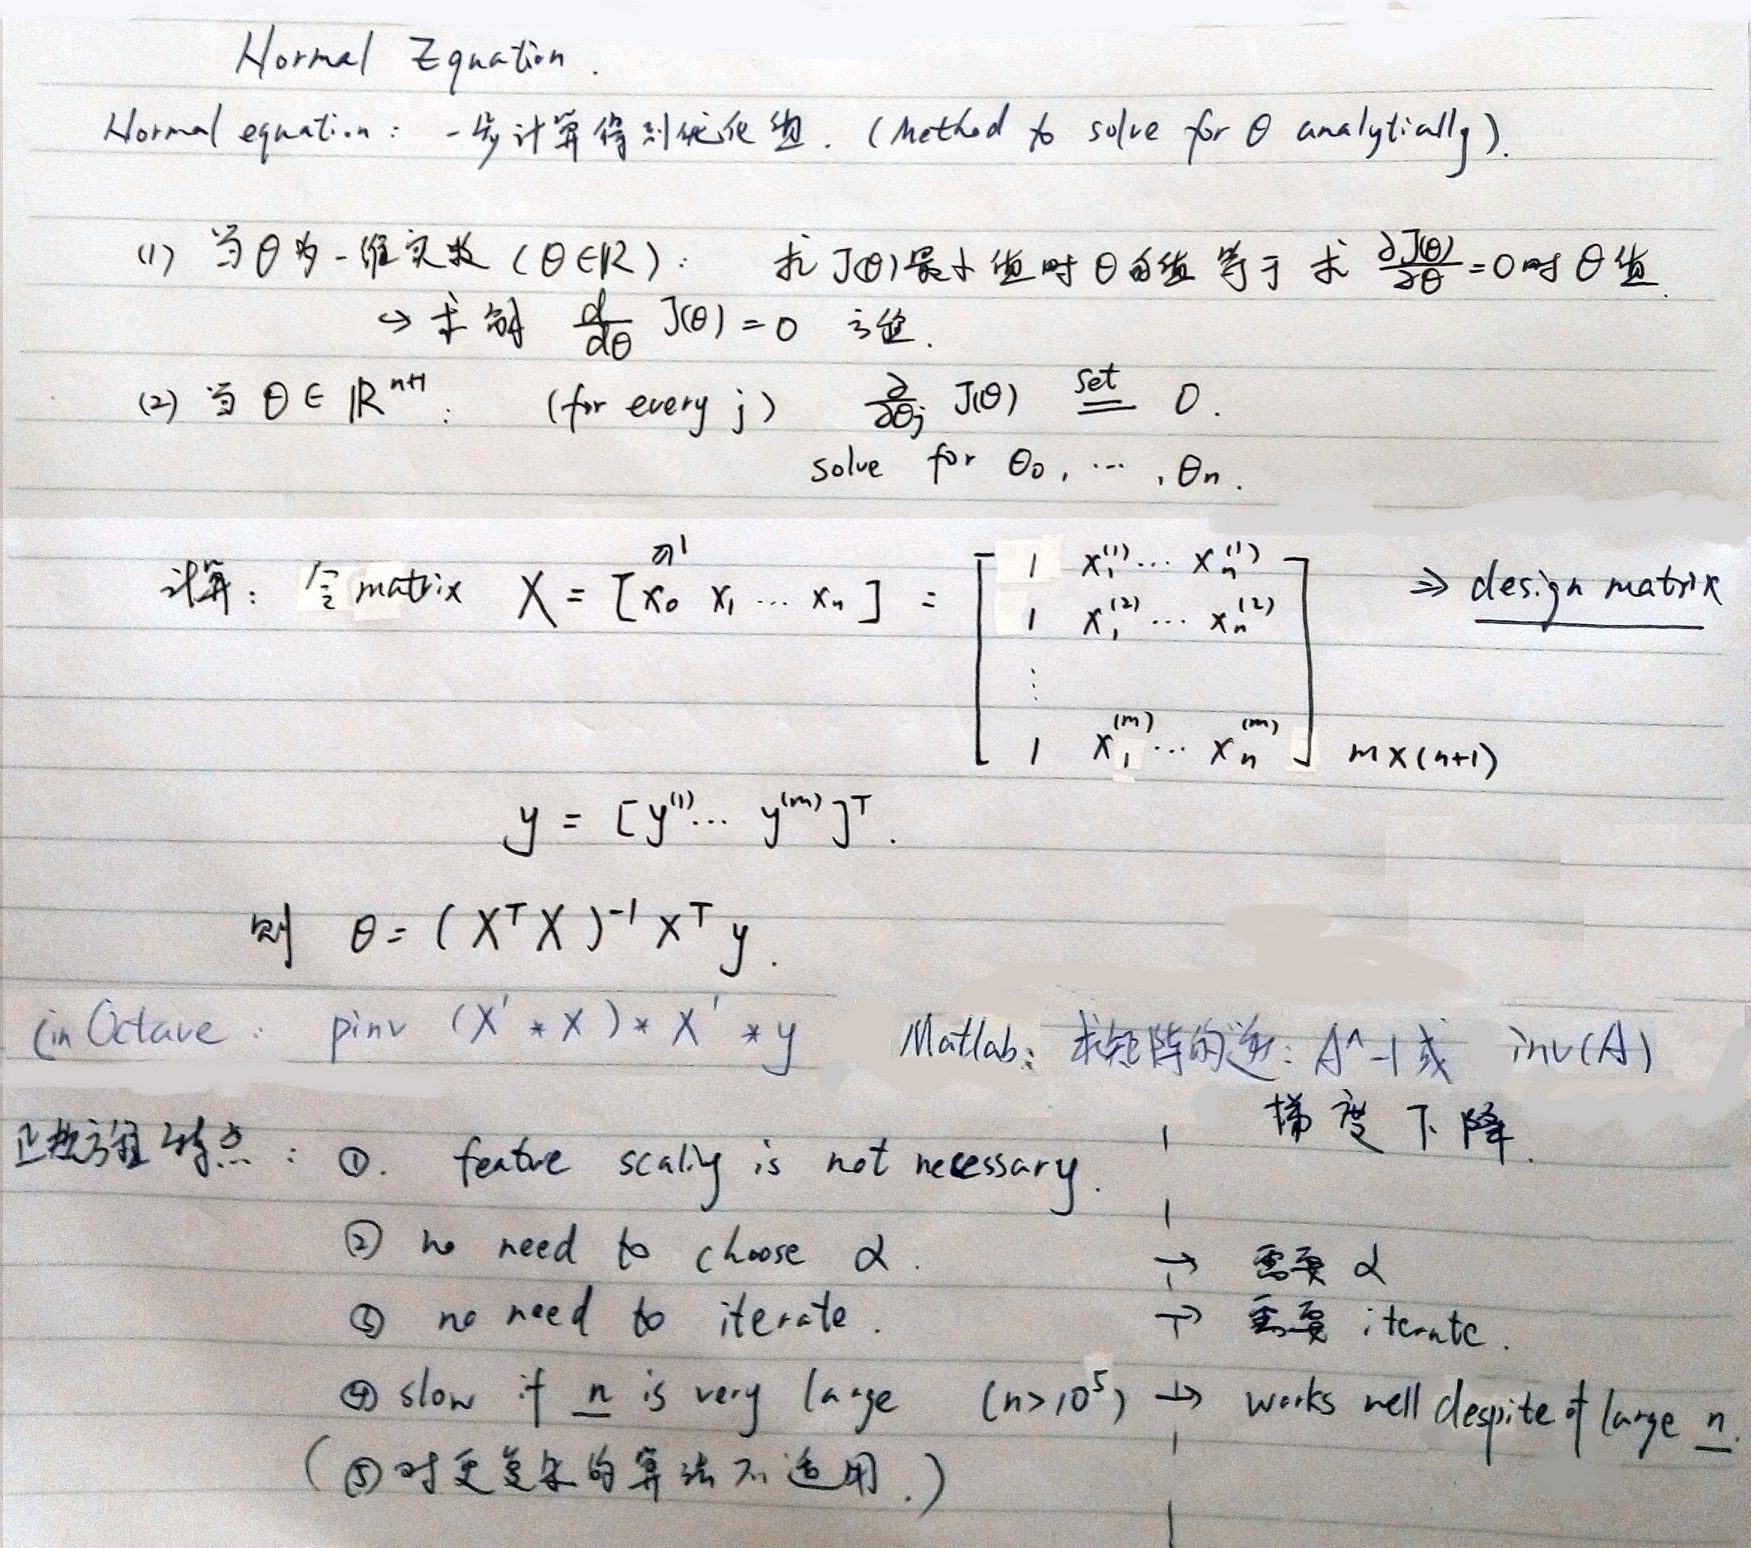 Normal Equation.
Normal equation: 一步计算得到优化值. (Method to solve for θ analytially).
(1) 当θ为一维实数 (θ∈ℝ): 求J(θ)最小值时θ的值等于求 ∂J(θ)/∂θ = 0时θ值.
↪ 求解 d/dθ J(θ) = 0 方程.
(2) 当 θ ∈ ℝⁿ⁺¹: (for every j) ∂/∂θⱼ J(θ) set= 0.
solve for θ₀, ⋯, θₙ.
计算: 令 matrix X = [x₀ x₁ ⋯ xₙ] = [1 x₁⁽¹⁾ ⋯ xₙ⁽¹⁾ ⇒ design matrix
1 x₁⁽²⁾ ⋯ xₙ⁽²⁾
⋮
1 x₁⁽ᵐ⁾ ⋯ xₙ⁽ᵐ⁾] m×(n+1)
y = [y⁽¹⁾ ⋯ y⁽ᵐ⁾]ᵀ.
则 θ = (XᵀX)⁻¹Xᵀy.
(in Octave: pinv (X' * X) * X' * y Matlab: 求矩阵的逆: A^-1 或 inv(A)
梯度下降.
正规方程特点: ①. feature scaling is not necessary.
② no need to choose α. → 需要 α
③ no need to iterate. → 需要 iterate.
④ slow if n is very large (n>10⁵) → works well despite of large n.
(⑤ 对更复杂的算法不适用.)